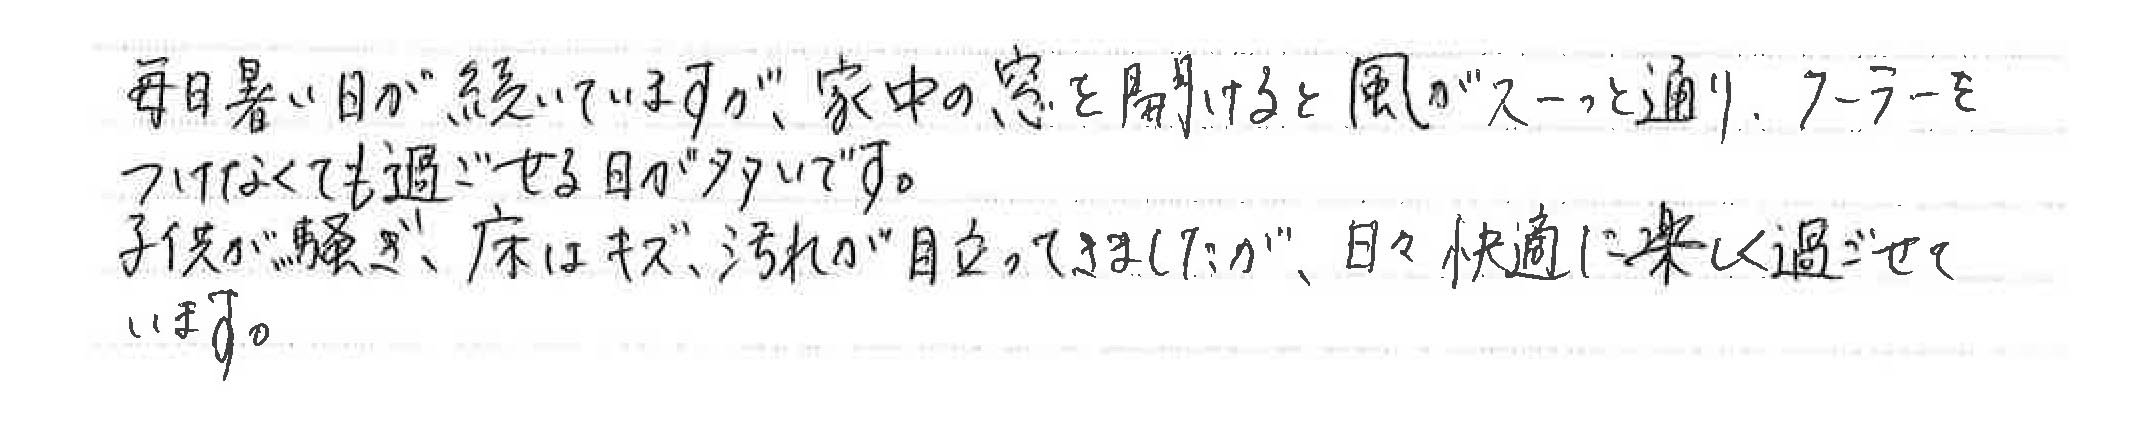 毎日暑い日が続いていますが、家中の窓を開けると風がスーっと通り、クーラーを
つけなくても過ごせる日が多いです。
子供が騒ぎ、床はキズ、汚れが目立ってきましたが、日々快適に楽しく過ごせて
います。